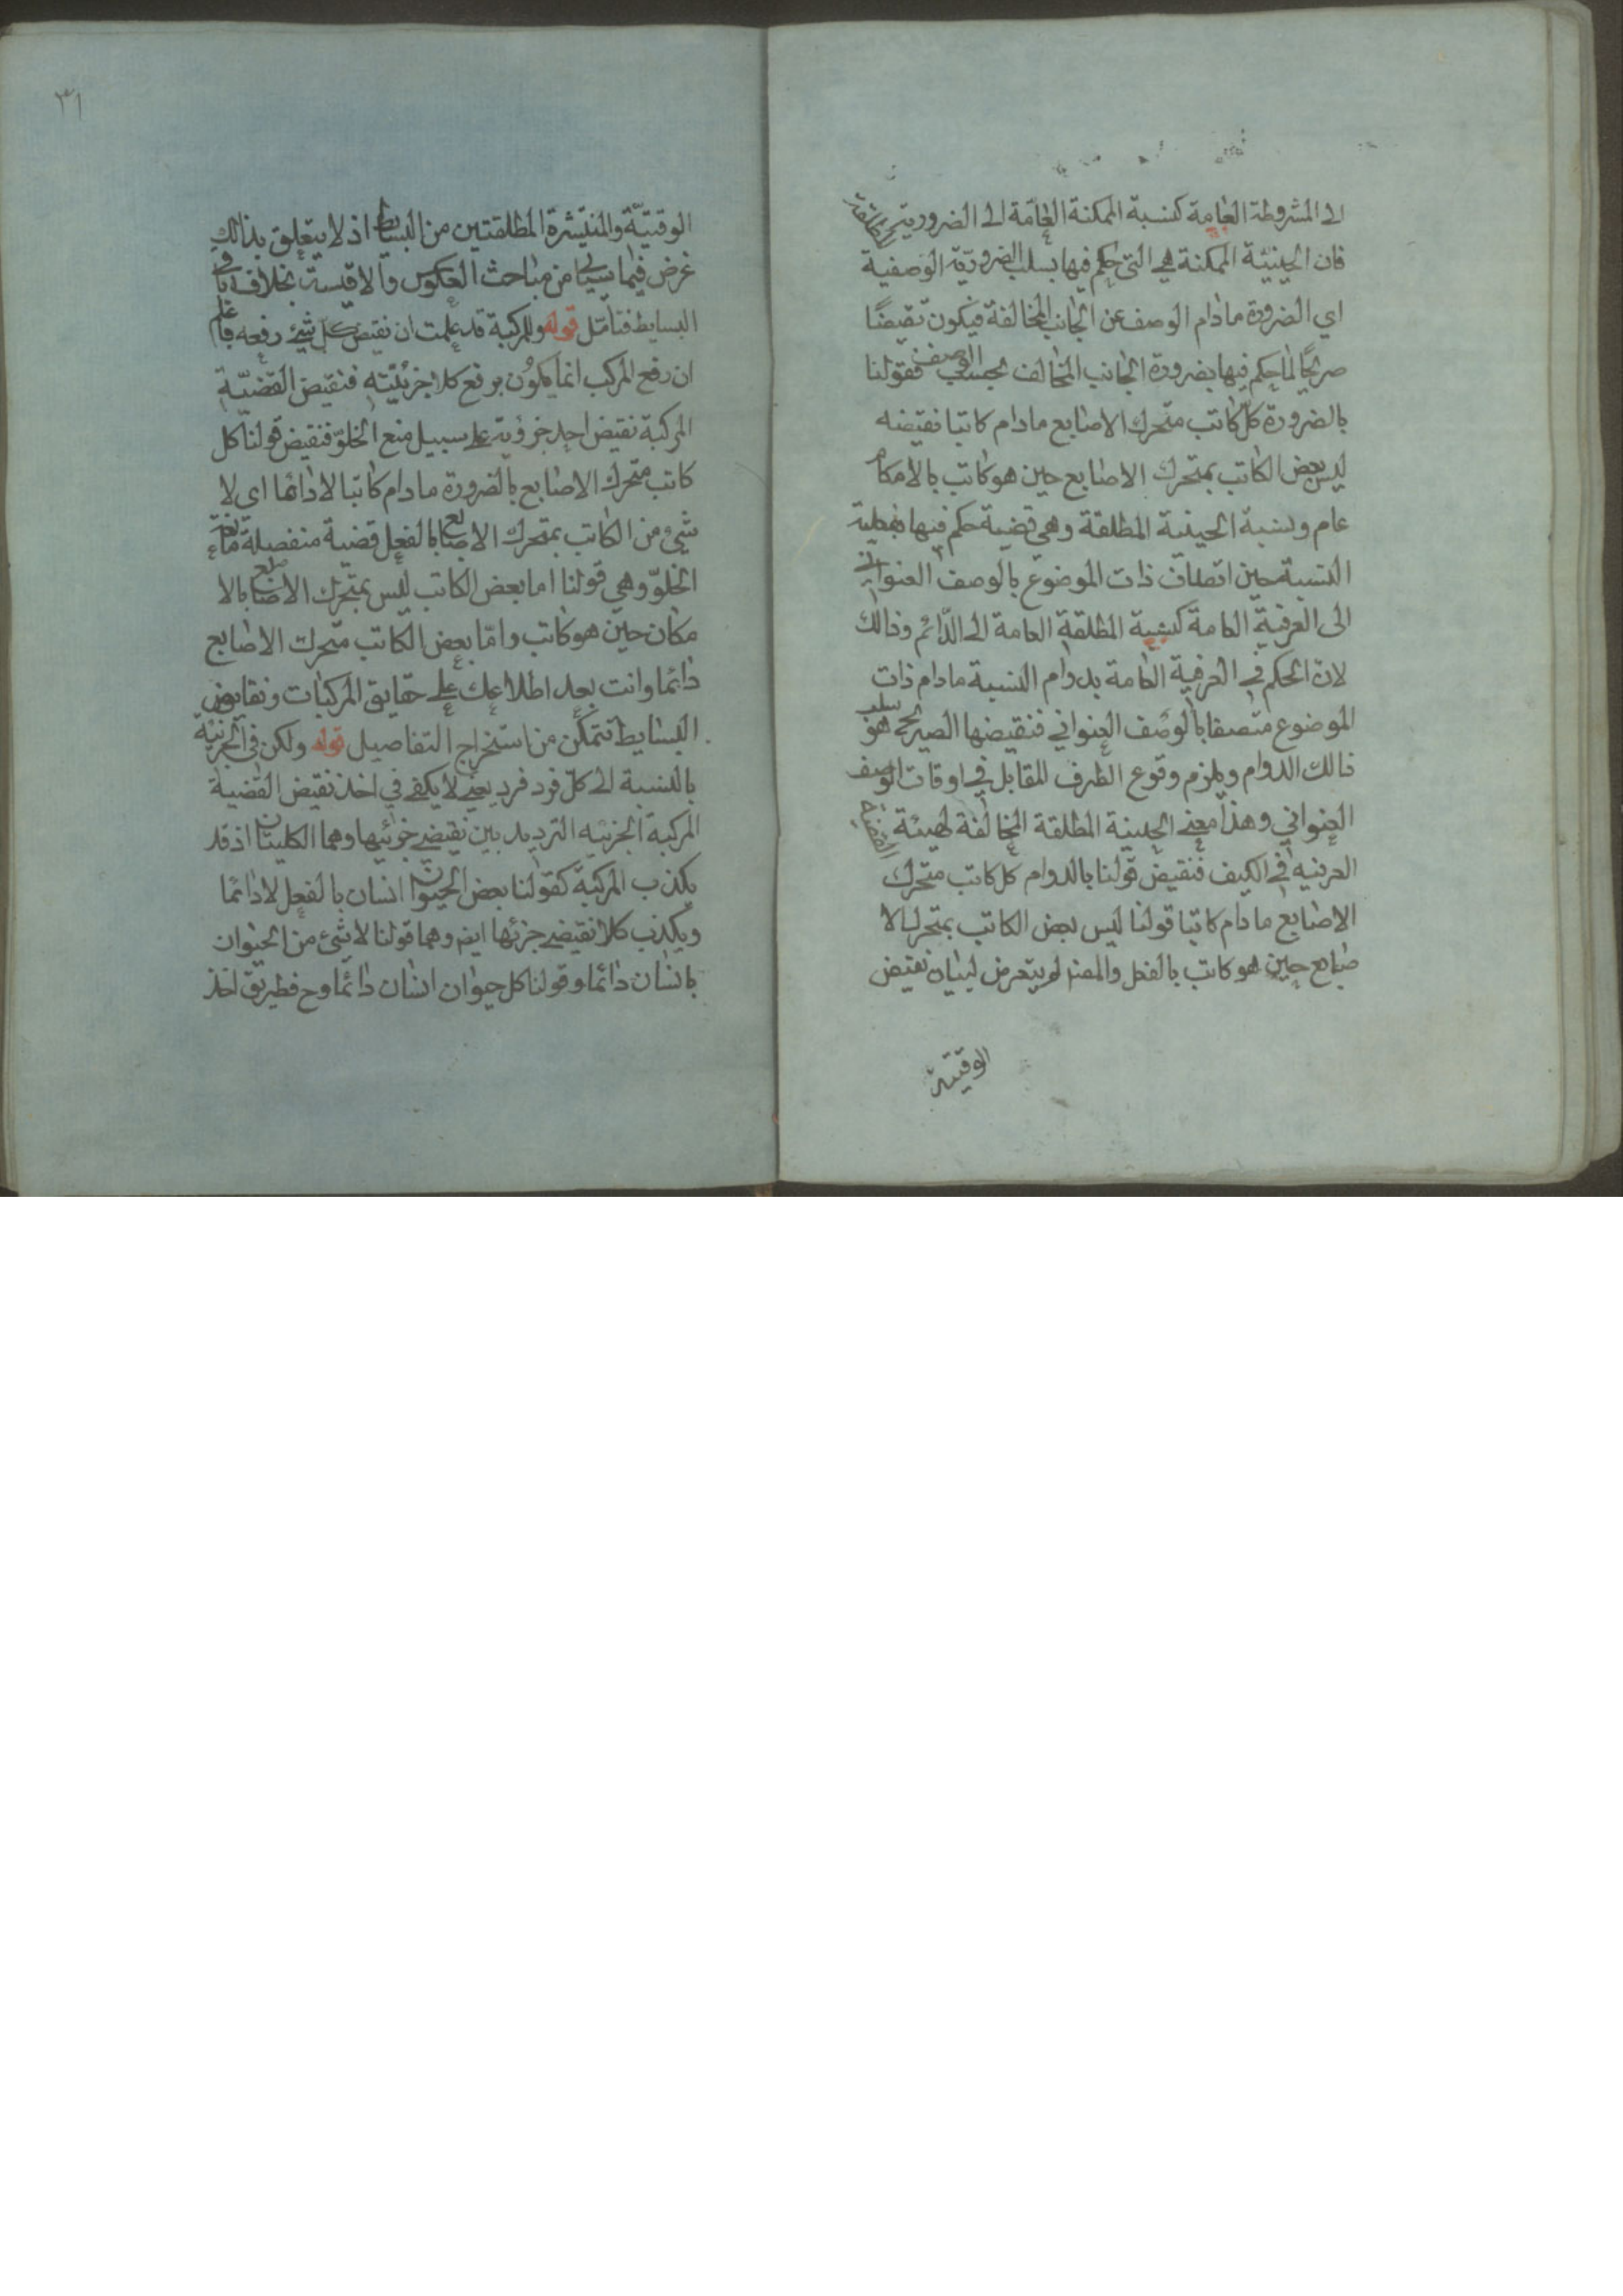 الى المشروطة العامة كنسبة الممكنة العامة الى الضرورية
فان الحينية الممكنة هي التي حكم فيها بسلب الضرورية الوصفية
اي الضرورة مادام الوصف عن الجانب المخالفة فيكون نقيضًا
صريحًا لما حكم فيها بضرورة الجانب المخالف بحسب الوصف فقولنا
بالضرورة كلّ كاتب متحرك الاصابع مادام كاتبا نقيضه
ليس بعض الكاتب بمتحرك الاصابع حين هو كاتب بالامكان
عام ونسبة الحينية المطلقة وهي قضية حكم فيها بفعلية
النسبة حين اتصاف ذات الموضوع بالوصف العنواني
الى العرفية العامة كنسبة المطلقة العامة الى الدّائم وذالك
لانّ الحكم في العرفية العامة بدوام النسبة مادام ذات
الموضوع متصفا بالوصف العنواني فنقيضها الصريح هو سلب
ذالك الدوام ويلزم وقوع الطرف المقابل في اوقات الوصف
العنواني وهذا معنى الحينية المطلقة المخالفة
العرفيه في الكيف فنقيض قولنا بالدوام كل كاتب متحرك
الاصابع مادام كاتبا قولنا ليس بعض الكاتب بمتحرك الا
صابع حين هو كاتب بالفعل والمصنف لم يتعرض لبيان نقيض
الوقتية
٣١
الوقتيّة والمنتشرة المطلقتين من البسايط اذ لا يتعلق بذالك
غرض فيما سيأتي من مباحث العكوس والاقيسة بخلاف باقي
البسايط فتأمّل قوله وللمركبة قد علمت ان نقيض كل شيئ رفعه فاعلم
ان رفع المركب انما يكون برفع كلا جزئيته فنقيض القضيّة
المركبة نقيض احد جزؤية على سبيل منع الخلوّ فنقيض قولنا كل
كاتب متحرك الاصابع بالضرورة مادام كاتبا لا دائما اى لا
شيئ من الكاتب بمتحرك الاصابع بالفعل قضية منفصلة مانعة
الخلوّ وهي قولنا اما بعض الكاتب ليس بمتحرك الاصابع بالا
مكان حين هو كاتب وامّا بعض الكاتب متحرك الاصابع
دائما وانت بعد اطلاعك على حقايق المركبات ونقايض
البسايط تتمكّن من استخراج التفاصيل قوله ولكن في الجزئية
بالنسبة الى كلّ فرد فرد يعني لا يكفي في اخذ نقيض القضية
المركبة الجزئيه الترديد بين نقيضي جزئيها وهما الكليتان اذ قد
يكذب المركبة كقولنا بعض الحيوان انسان بالفعل لا دائمًا
ويكذب كلا نقيضي جزئها ايضا وهما قولنا لا شيئ من الحيوان
بانسان دائما وقولنا كل حيوان انسان دائما وح فطريق اخذ